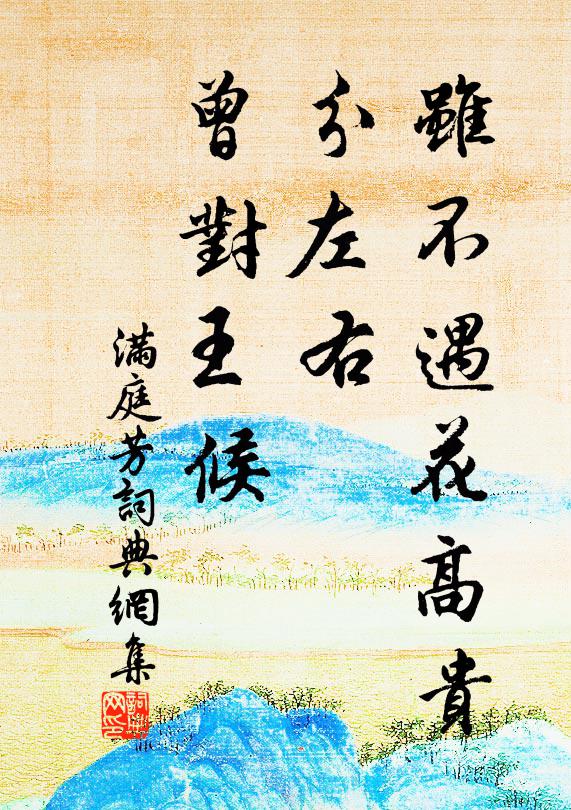 雖不遇花高貴
分左右
曾對王候
滿庭芳詞典網集